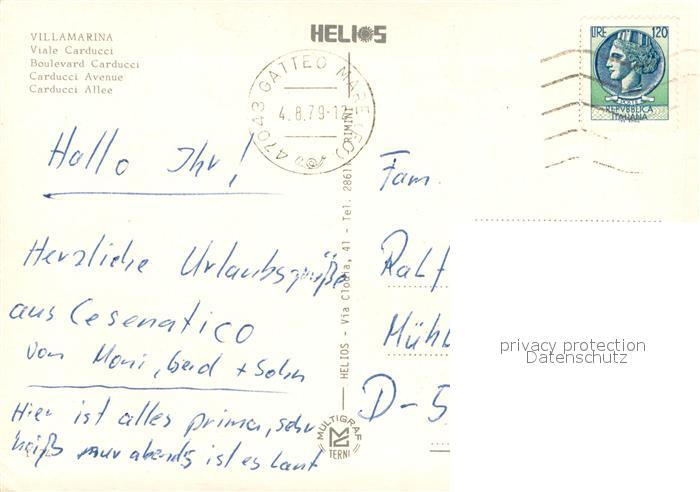 VILLAMARINA
Viale Carducci
Boulevard Carducci
Carducci Avenue
Carducci Allee
HELIOS
47043 GATTEO MARE (FO)
4.8.79-12
LIRE 120
REPVBBLICA
ITALIANA
Hallo Ihr!
Herzliche Urlaubsgrüße
aus Cesenatico
von Moni, + Sohn
Hier ist alles prima, sehr
heiß nur abends ist es laut
HELIOS - Via Clodia, 41 - Tel. 2861 RIMINI
MULTIGRAF
TERNI
Fam.
Ralf
Mühl
D-5
privacy protection
Datenschutz